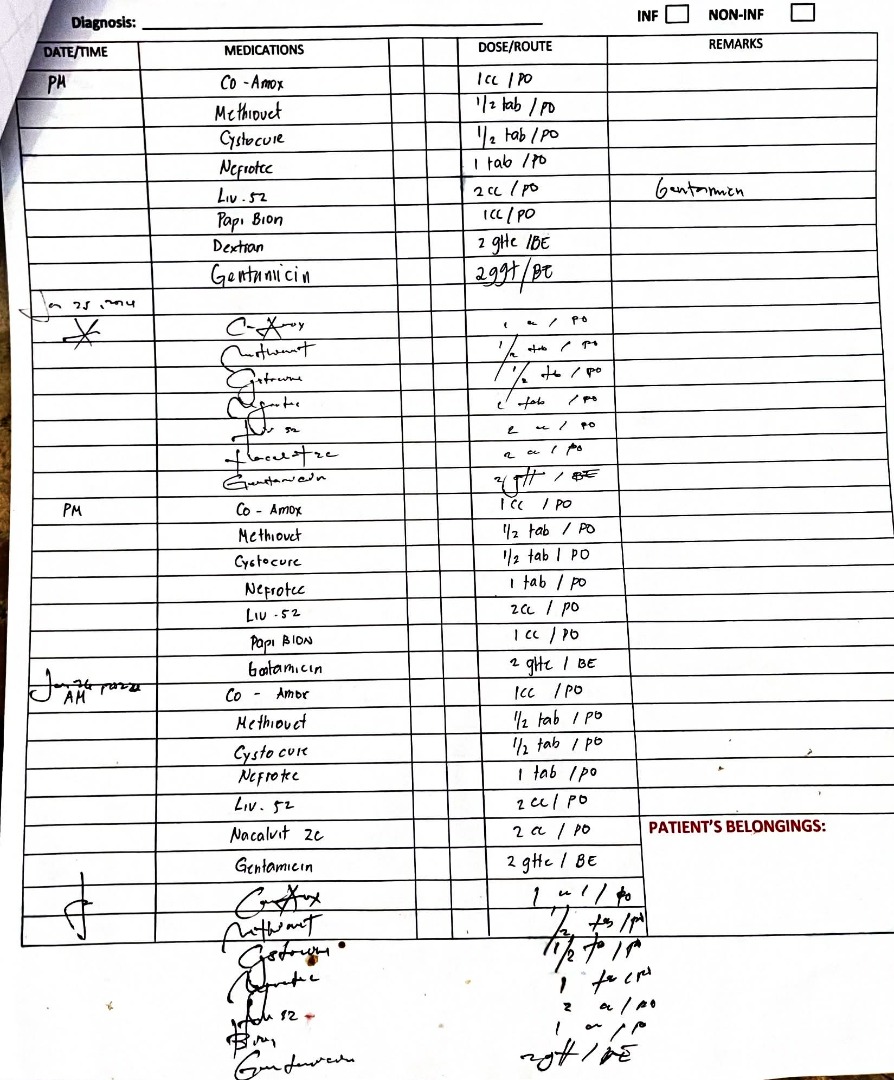 Diagnosis: INF NON-INF
DATE/TIME MEDICATIONS DOSE/ROUTE REMARKS
PM Co-Amox 1cc / PO
Methiovet 1/2 tab / PO
Cystocure 1/2 tab / PO
Nefrotec 1 tab / PO
Liv. 52 2cc / PO Gentamicin
Papi Bion 1cc / PO
Dextran 2 gtte / BE
Gentamicin 2 gtt / BE
Jan 25,
Co-Amox / PO
1/2 tab / PO
1/2 / PO
tab / PO
52 2 / PO
2 / PO
Gentamicin 2 gtt / BE
PM Co-Amox 1cc / PO
Methiovet 1/2 tab / PO
Cystocure 1/2 tab / PO
Nefrotec 1 tab / PO
Liv. 52 2cc / PO
Papi BION 1 cc / PO
Gentamicin 2 gtte / BE
Jan. 26
AM Co - Amox 1cc / PO
Methiovet 1/2 tab / PO
Cystocure 1/2 tab / PO
Nefrotec 1 tab / PO
Liv. 52 2cc / PO
Nacalvit 2c 2 cc / PO
PATIENT'S BELONGINGS:
Gentamicin 2 gtte / BE
Co-Amox 1 / PO
1/2
1/2
1
52 2 / PO
1
Gentamicin 2 gtt / BE